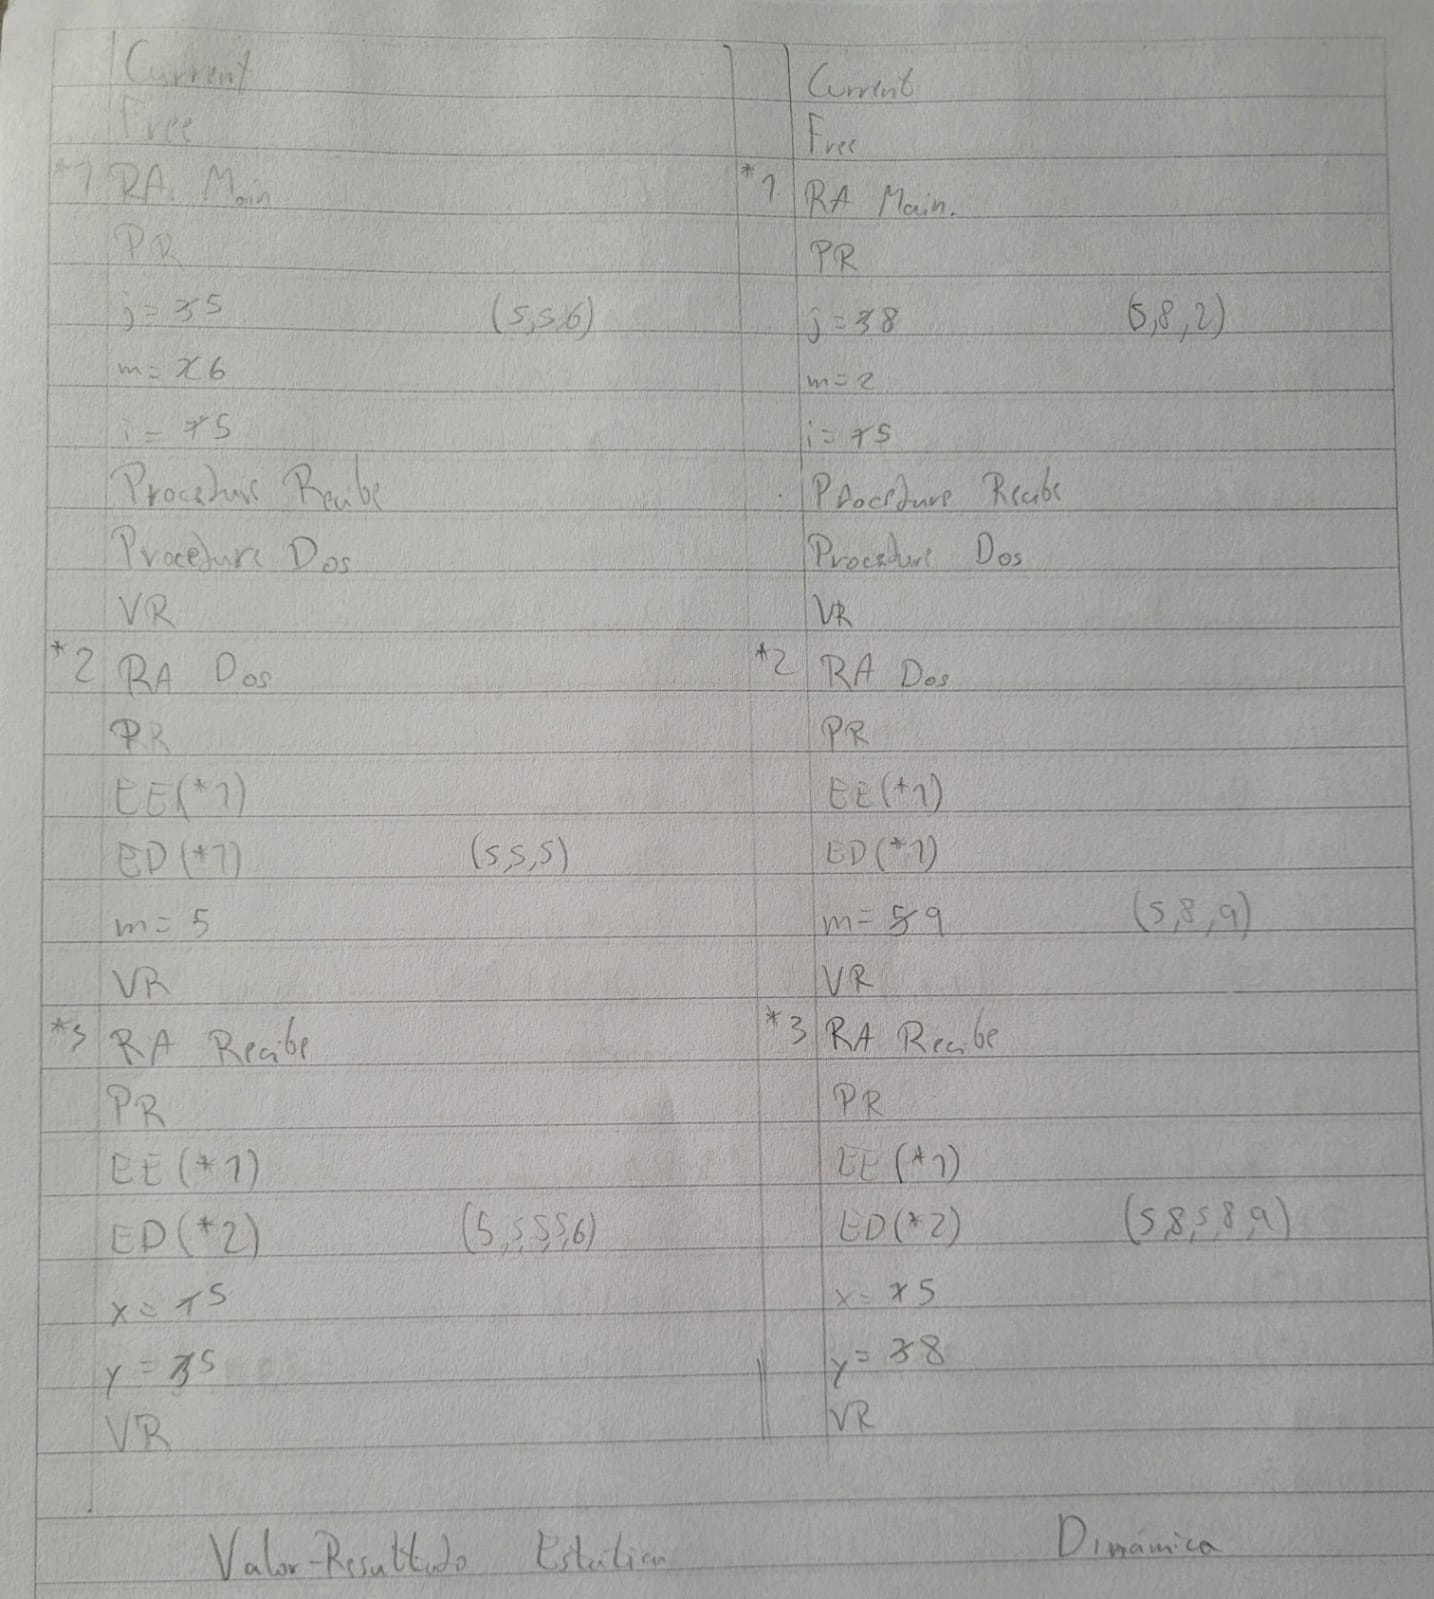 Current
Free
*1 RA Main
PR
j = 3 5 (5,5,6)
m = 2 6
i = 1 5
Procedure Recibe
Procedure Dos
VR
*2 RA Dos
PR
EE(*1)
ED(*1) (5,5,5)
m = 5
VR
*3 RA Recibe
PR
EE(*1)
ED(*2) (5,5,5,5,6)
x = 1 5
y = 3 5
VR
Valor-Resultado Estática
Current
Free
*1 RA Main.
PR
j = 3 8 (5,8,2)
m = 2
i = 1 5
Procedure Recibe
Procedure Dos
VR
*2 RA Dos
PR
EE(*1)
ED(*1)
m = 5 9 (5,8,9)
VR
*3 RA Recibe
PR
EE(*1)
ED(*2) (5,8,5,8,9)
x = 1 5
y = 3 8
VR
Dinámica